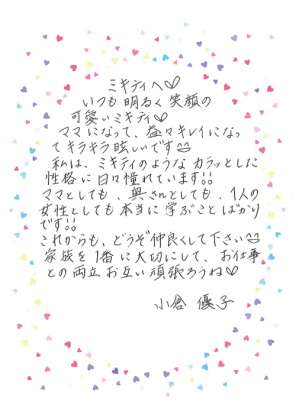 ミキティへ♡
いつも明るく笑顔の
可愛いミキティ♡
ママになって、益々キレイになっ
てキラキラ眩しいです
私は、ミキティのようなカラッとした
性格に日々憧れています!!
ママとしても、奥さんとしても、1人の
女性としても本当に学ぶことばかり
です!!
これからも、どうぞ仲良くして下さい
家族を1番に大切にして、お仕事
との両立お互い頑張ろうね♡
小倉 優子